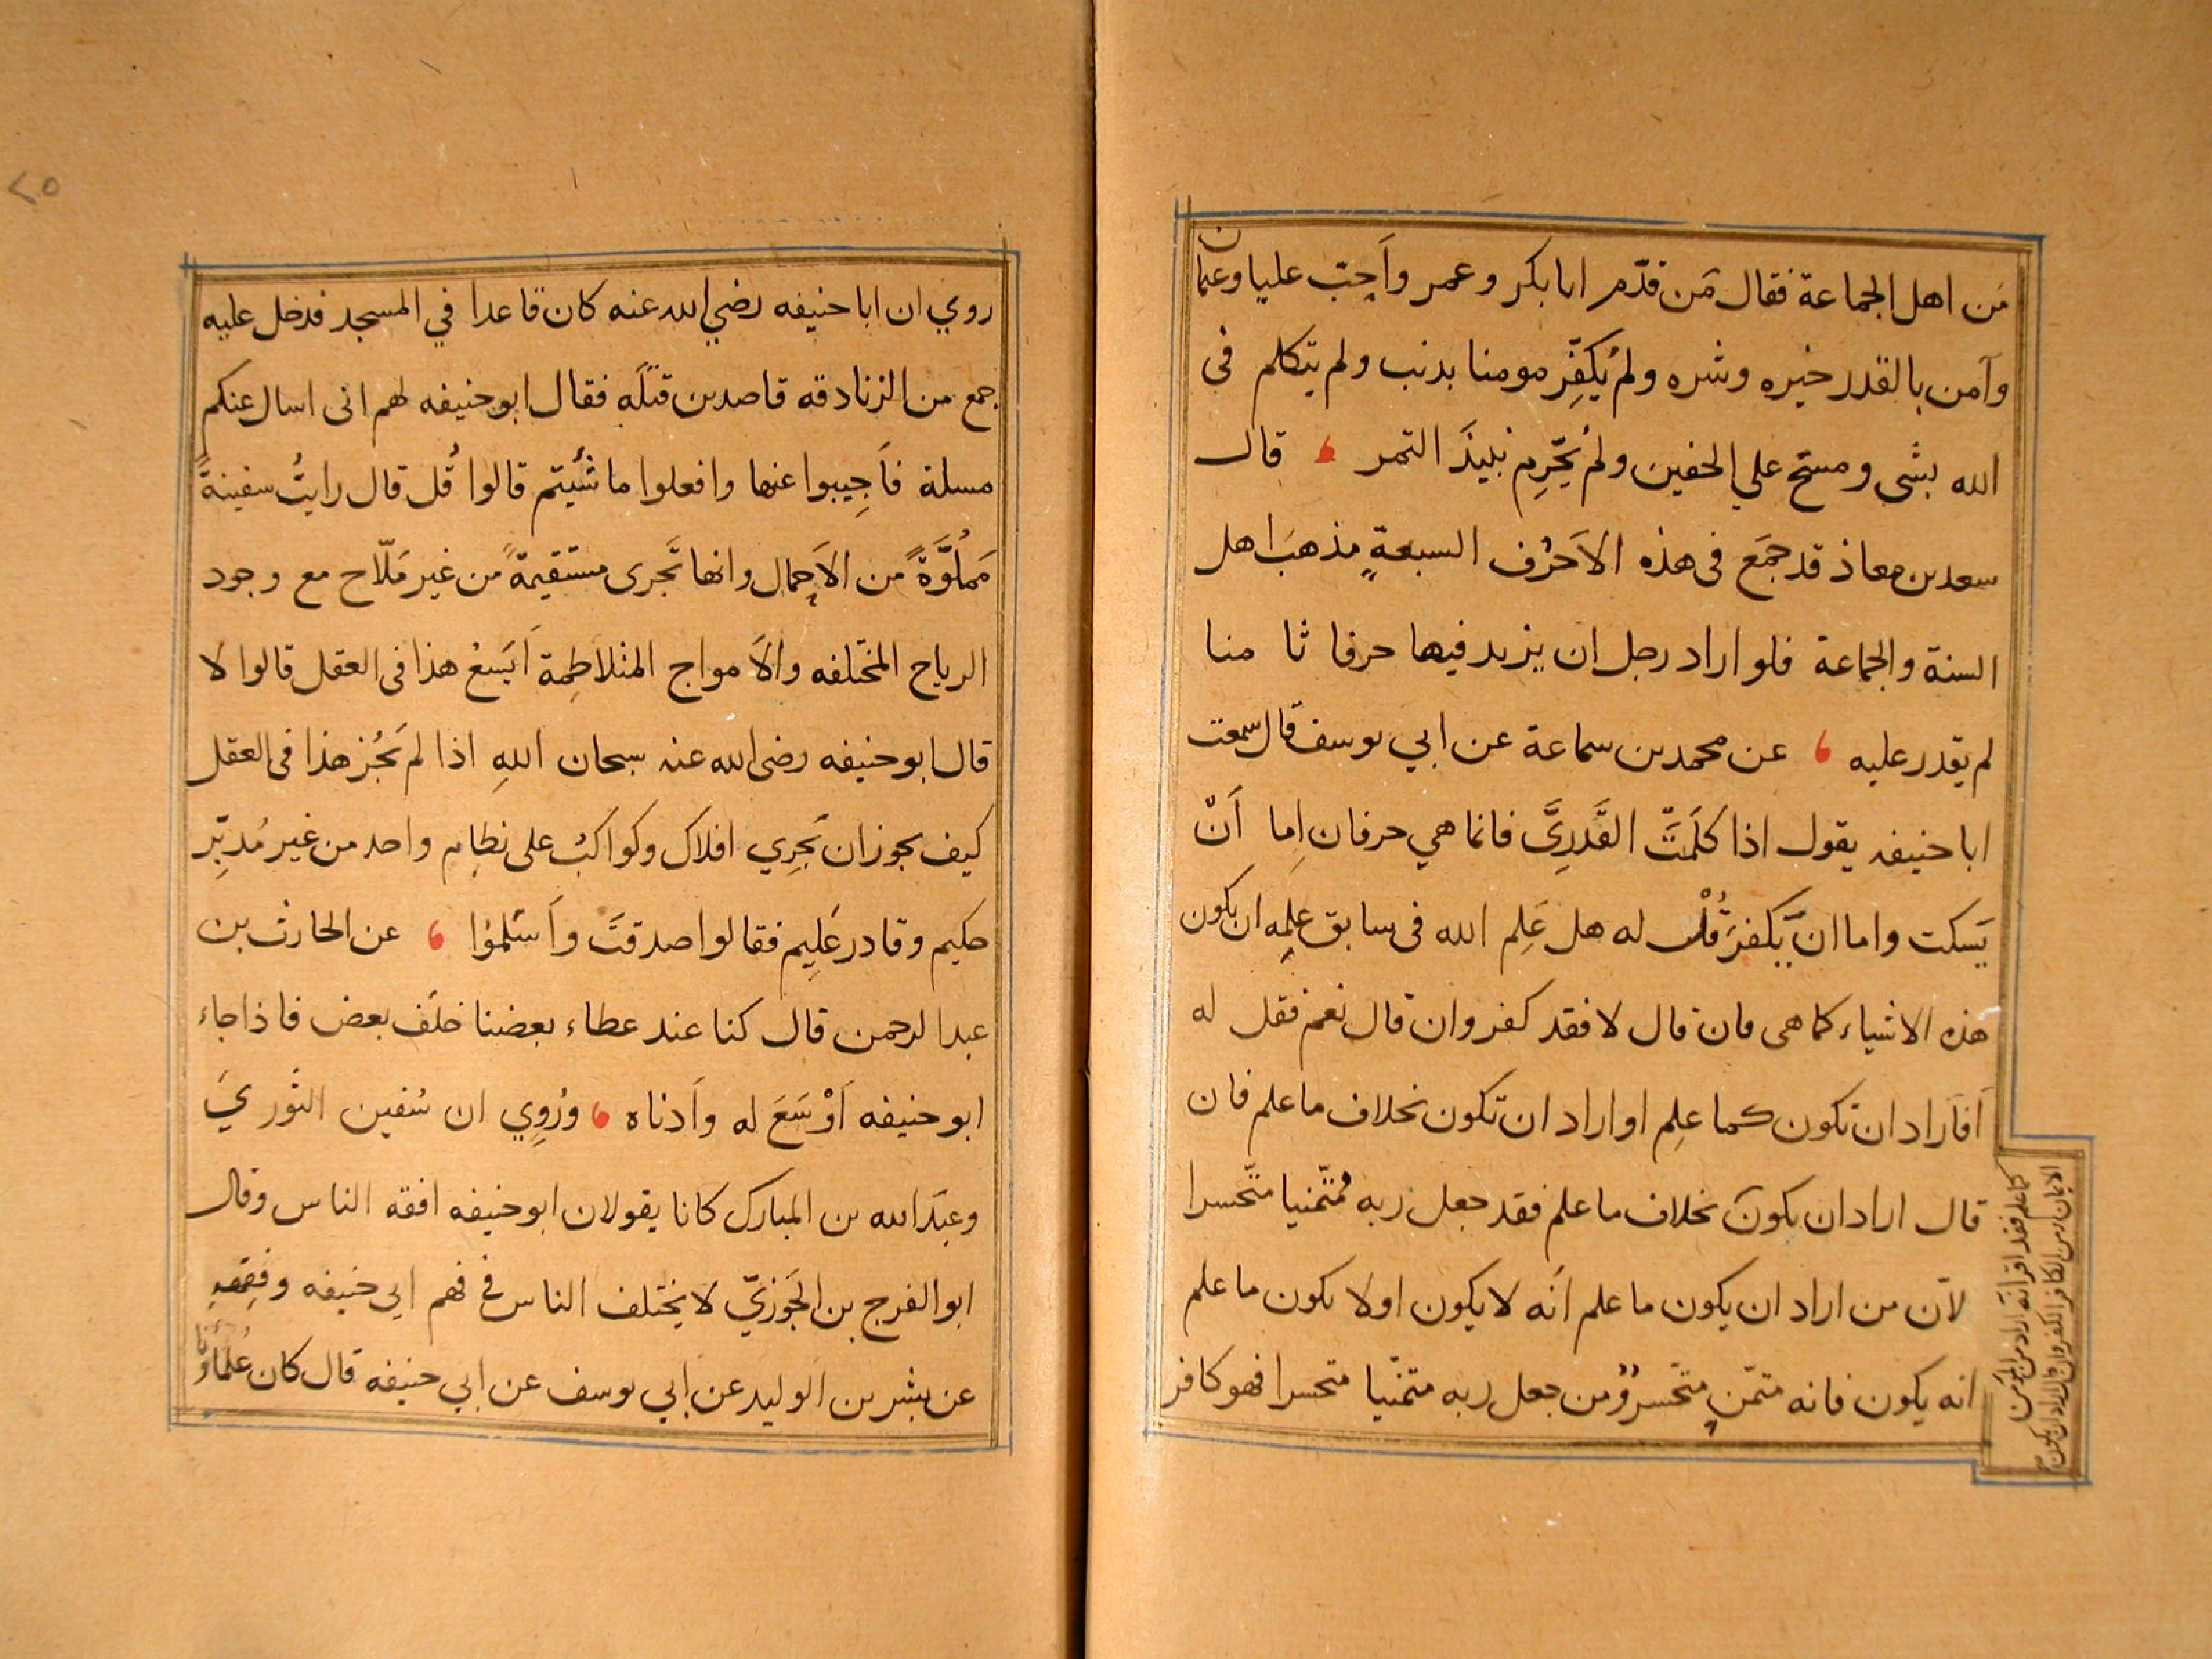 مَن اهل الجماعة فقال مَن قدّم ابا بكر وعمر واَحِبّ عليا وعثمان
وآمن بالقدر خيره وشره ولم يُكفِّر مومنا بدنب ولم يتكلم فى
الله بشى ومسَح على الخفين ولم يُحَرِّم نبيذَ التمر ، قال
سعد بن معاذ قد جمَع فى هذه الاَحرُف السبعةِ مذهبَ اهل
السنة والجماعة فلو اراد رجل ان يزيد فيها حرفا ثا منا
لم يقدر عليه ، عن محمد بن سماعة عن ابي يوسف قال سمعت
ابا حنيفه يقول اذا كلَّمتَ القَدَرِىَّ فانما هي حرفان اِما اَنْ
يَسكت واما ان يَّكفرَ قُلْ له هل عَلِم الله فى سابق علمِه ان يكون
هذه الاشياء كما هى فان قال لا فقد كفر وان قال نعم فقل له
اَفاَراد ان تكون كما علِم او اراد ان تكون بخلاف ما علم فان
قال اراد ان يكونَ بخلاف ما علم فقد جعل ربه مُتمّنيا متّحسرا
لاَن من اراد ان يكون ما علم اَنه لا يكون او لا يكون ما علم
انه يكون فانه متمّنٍ متحّسرٌ ومن جعل ربه متمنّيا متحسرا فهو كافر
كما علم فقد اقر انه اراد من المؤمن
الايمان ومن الكافر الكفر وان قال اراد ان يكون
٢٥
روي ان ابا حنيفه رضي الله عنه كان قاعدا في المسجد فدخل عليه
جمع من الزنادقه قاصدين قتلَه فقال ابو حنيفه لهم انى اسال عنكم
مسلة فاَجِيبوا عنها وافعلوا ما شئيتم قالوا قُل قال رايتُ سفينةً
مَملُوَّةً من الاَحِمال وانها تَجرى مستقيمةً من غير مَلّاح مع وجود
الرياح المختلفه والاَمواج المتلاطِمة اَيَسعُ هذا فى العقل قالوا لا
قال ابو حنيفه رضى الله عنه سبحان اللهِ اذا لم يَجُز هذا فى العقل
كيف يجوز ان تَجرِي افلاك وكواكبُ على نظامِ واحد من غير مُدبِّر
حكيم وقادر عَلِيم فقالوا صدقتَ واَسَلمُوا ، عن الحارث بن
عبد الرحمن قال كنا عند عطاء بعضنا خلَف بعض فاذا جاء
ابو حنيفه اَوْسَعَ له واَدناه ، ورُوِي ان سُفين الثَوريَ
وعبدَ الله بن المبارك كانا يقولان ابو حنيفه افقه الناس وقال
ابو الفرج بن الجَوزيّ لا يختلف الناس فى فهم ابى حنيفه وفِقهِهِ
عن بشر بن الوليد عن ابي يوسف عن ابي حنيفه قال كان عُلماؤنا